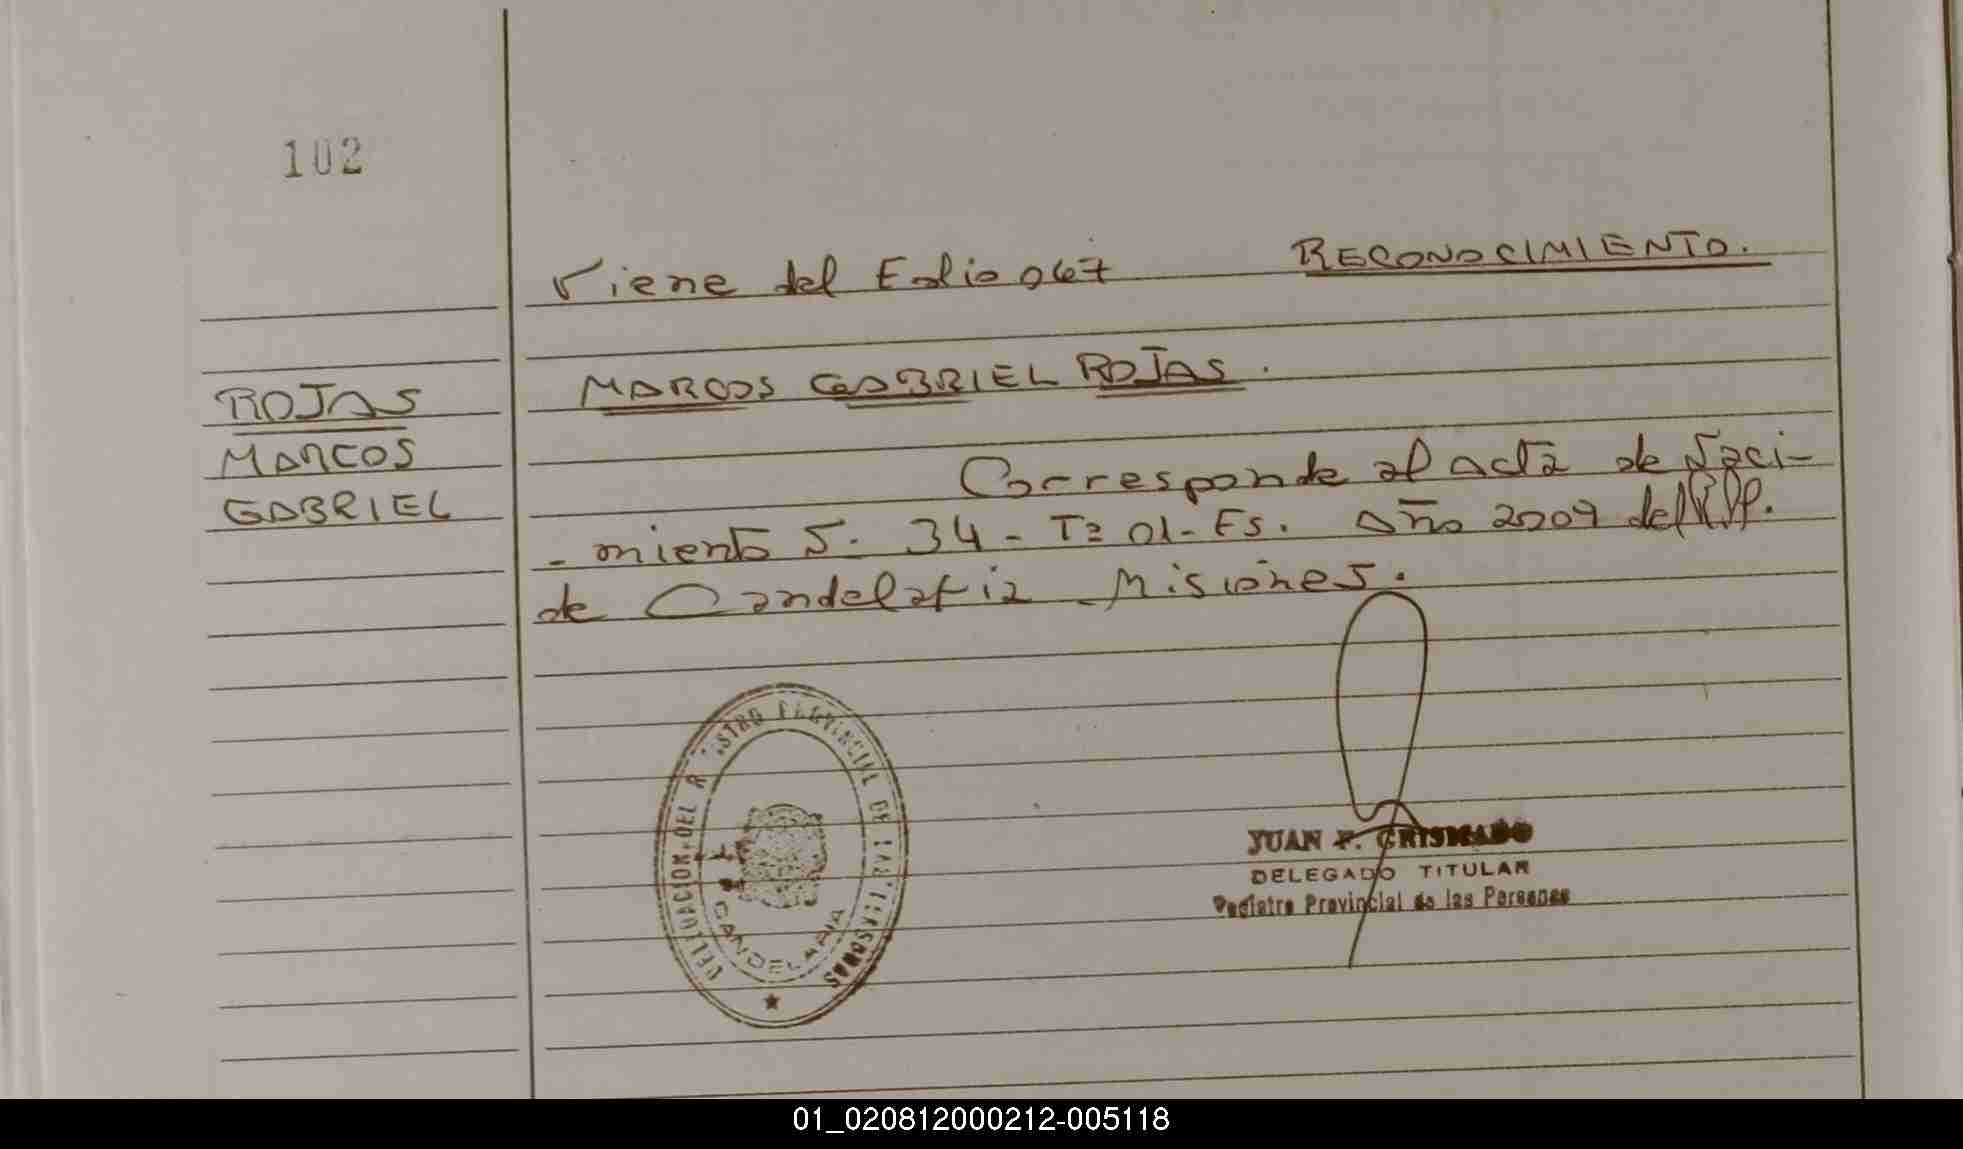 102
Viene del Folio 067 RECONOCIMIENTO.
ROJAS
MARCOS
GABRIEL
MARCOS GABRIEL ROJAS.
Corresponde al acta de Naci-
- miento 5. 34 - Tº 01 - Es. Año 2009 del RPP.
de Candelaria - Misiones.
REGISTRO PROVINCIAL DE LAS PERSONAS
CANDELARIA
JUAN F. CRISMADO
DELEGADO TITULAR
Registro Provincial de las Personas
01_020812000212-005118